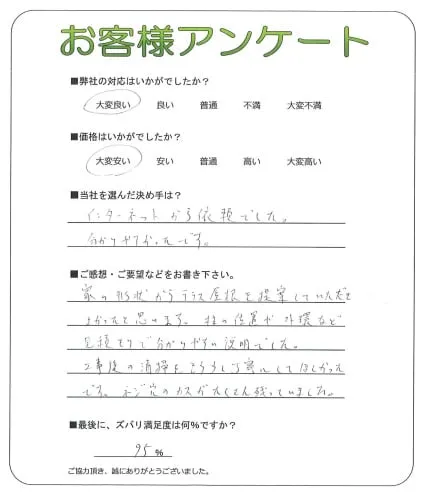 お客様アンケート
■弊社の対応はいかがでしたか?
大変良い 良い 普通 不満 大変不満
■価格はいかがでしたか?
大変安い 安い 普通 高い 大変高い
■当社を選んだ決め手は?
インターネットから依頼でした。
分かりやすかったです。
■ご感想・ご要望などをお書き下さい。
家の形状からテラス屋根を提案していただき
よかったと思います。柱の位置や外環など
見積もりで分かりやすい説明でした。
工事後の清掃をもう少し丁寧にしてほしかった
です。ネジ穴のカスがたくさん残っていました。
■最後に、ズバリ満足度は何%ですか?
95 %
ご協力頂き、誠にありがとうございました。